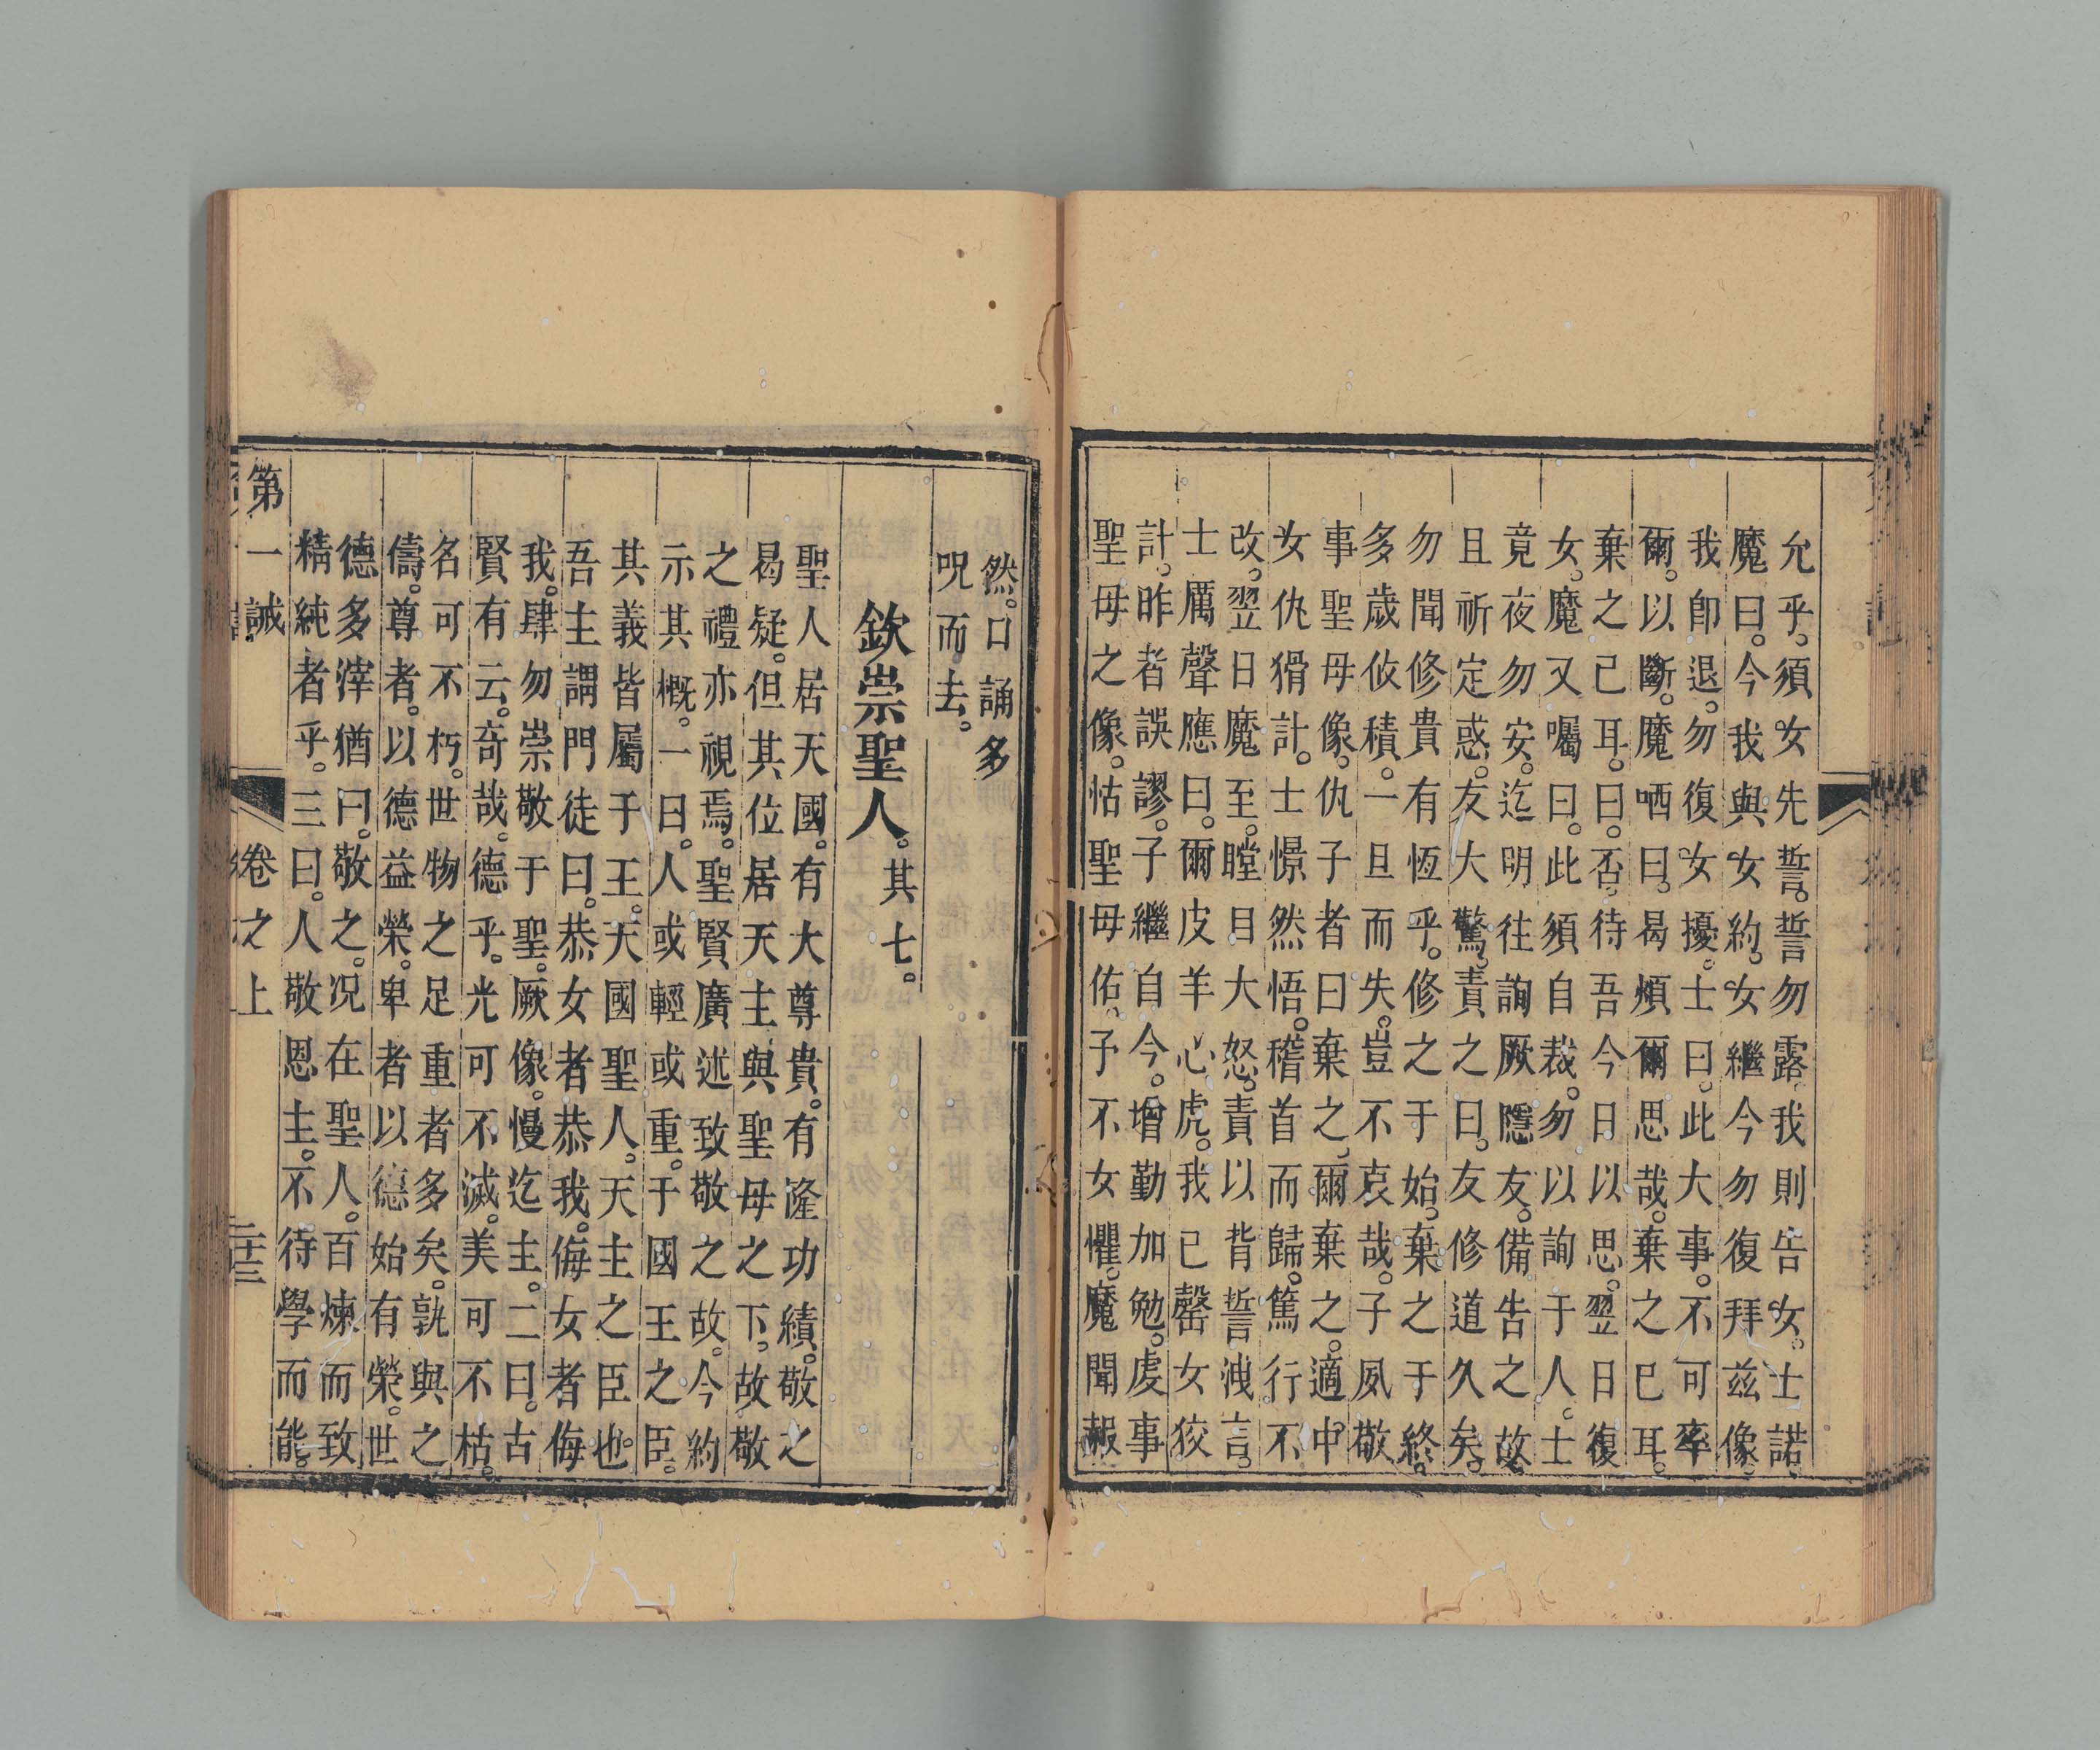 允乎。須女先誓。誓勿露我則告女。士諾。
魔曰。今我與女約。女繼今勿復拜兹像。
我卽退。勿復女擾。士曰。此大事。不可率
爾。以斷。魔哂曰。曷煩爾思哉。棄之巳耳。
棄之己耳。曰。否。待吾今日以思。翌日復
女。魔又囑曰。此須自裁。勿以詢于人。士
竟夜勿安。迄明往詢厥隱友。備告之故。
且祈定惑。友大驚。責之曰。友修道久矣。
勿聞修貴有恆乎。修之于始。棄之于終。
多歲攸積。一旦而失。豈不哀哉。子夙敬
事聖母像。仇子者曰棄之。爾棄之。適中
女仇猾計。士憬然悟。稽首而歸。篤行不
改。翌日魔至。瞠目大怒。責以背誓洩言。
士厲聲應曰。爾皮羊心虎。我已罄女狡
計。昨者誤謬。子繼自今。增勤加勉。虔事
聖母之像。怙聖母佑。予不女懼。魔聞赧
然。口誦多
呪而去。
欽崇聖人。其七。
聖人居天國。有大尊貴。有隆功績。敬之
曷疑。但其位居天主與聖母之下。故敬
之禮亦視焉。聖賢廣述致敬之故。今約
示其概。一曰。人或輕或重。于國王之臣。
其義皆屬于王。天國聖人。天主之臣也。
吾主謂門徒曰。恭女者恭我。侮女者侮
我。肆勿崇敬于聖。厥像。慢迄主。二曰。古
賢有云。奇哉。德乎。光可不滅。美可不枯。
名可不朽。世物之足重者多矣。孰與之
儔。尊者。以德益榮。卑者以德始有榮。世
德多滓猶曰。敬之。況在聖人。百煉而致
精純者乎。三曰。人敬恩主。不待學而能。
第一誡 卷之上 二十三